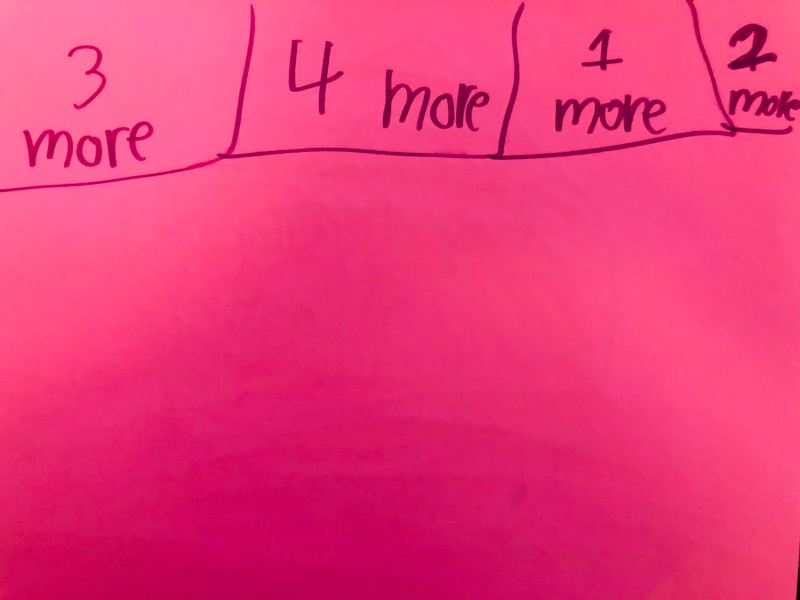 3
more
4 more
1
more
2
more